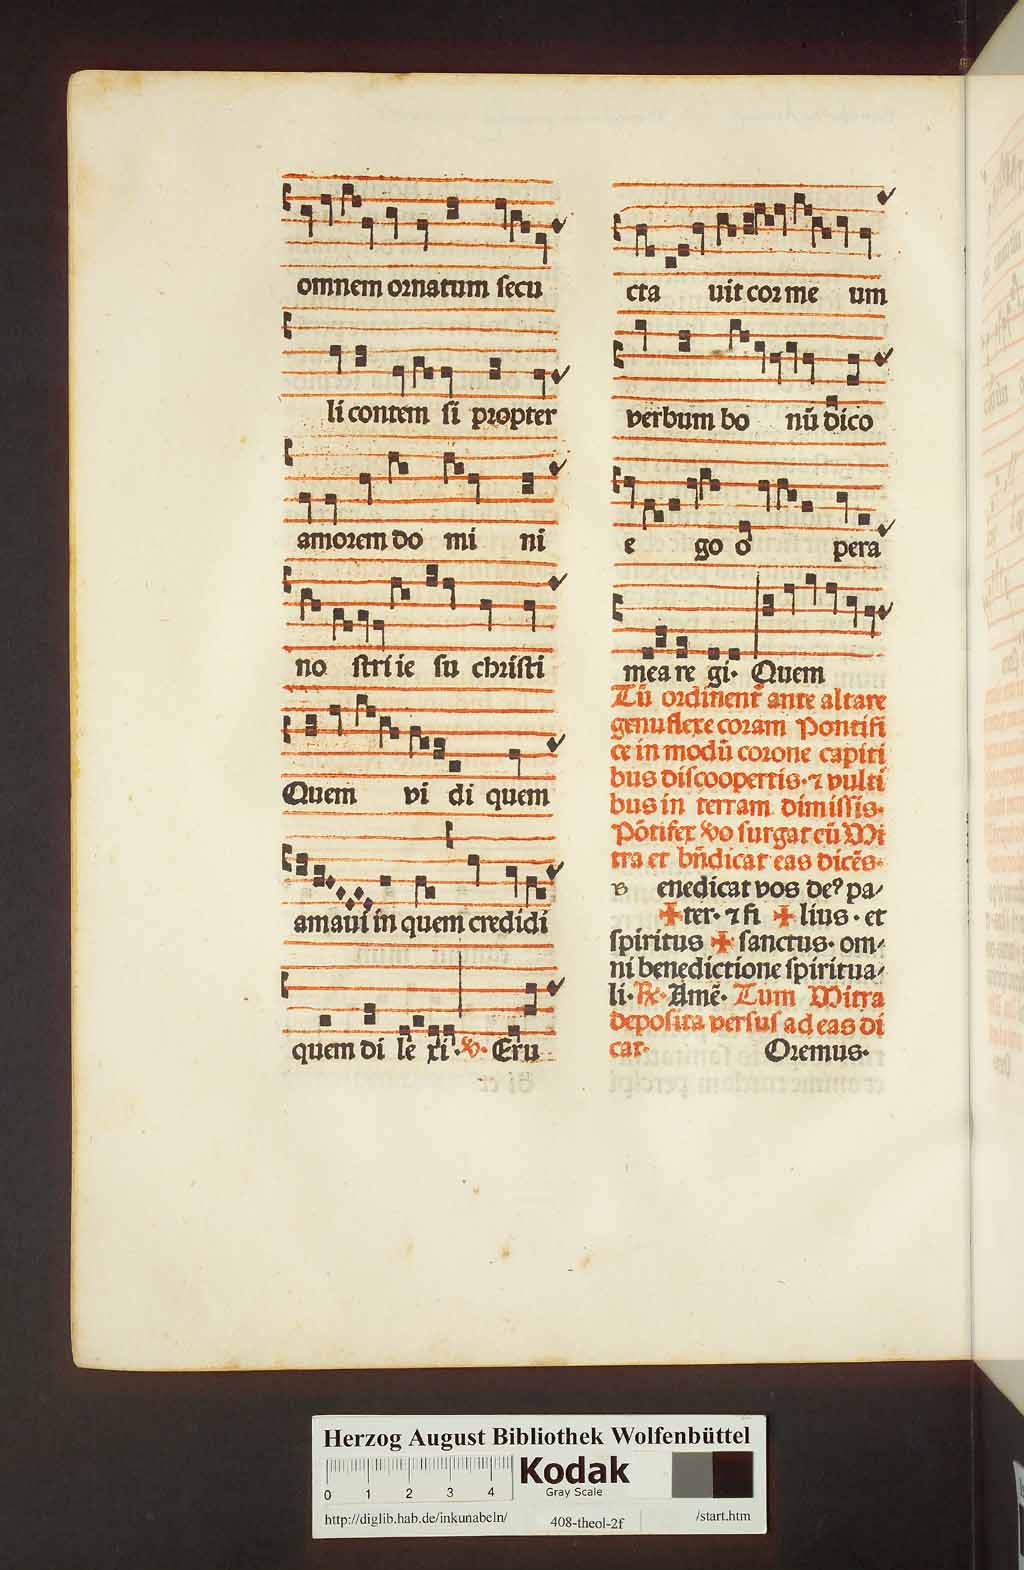 omnem ornatum secu
li contem si propter
amorem do mi ni
no stri ie su christi
Quem vi di quem
amaui in quem credidi
quem di le xi · ℣ · Eru
cta uit cor me um
verbum bo nū dico
e go o pera
mea re gi · Quem
Tū ordinent᷑ ante altare
genuflexe coram Pontifi
ce in modū corone capiti
bus discoopertis · ⁊ vulti
bus in terram dimissis ·
Pōtifex ꝟo surgat cū Mi
tra et bn̄dicat eas dicēs ·
B enedicat vos deꝰ pa/
✠ ter · ⁊ fi ✠ lius · et
spiritus ✠ sanctus · om/
ni benedictione spiritua/
li · ℞ · Amē · Tum Mitra
deposita versus ad eas di
cat · Oremus ·
Herzog August Bibliothek Wolfenbüttel
0 1 2 3 4
Kodak
Gray Scale
http://diglib.hab.de/inkunabeln/ 408-theol-2f /start.htm